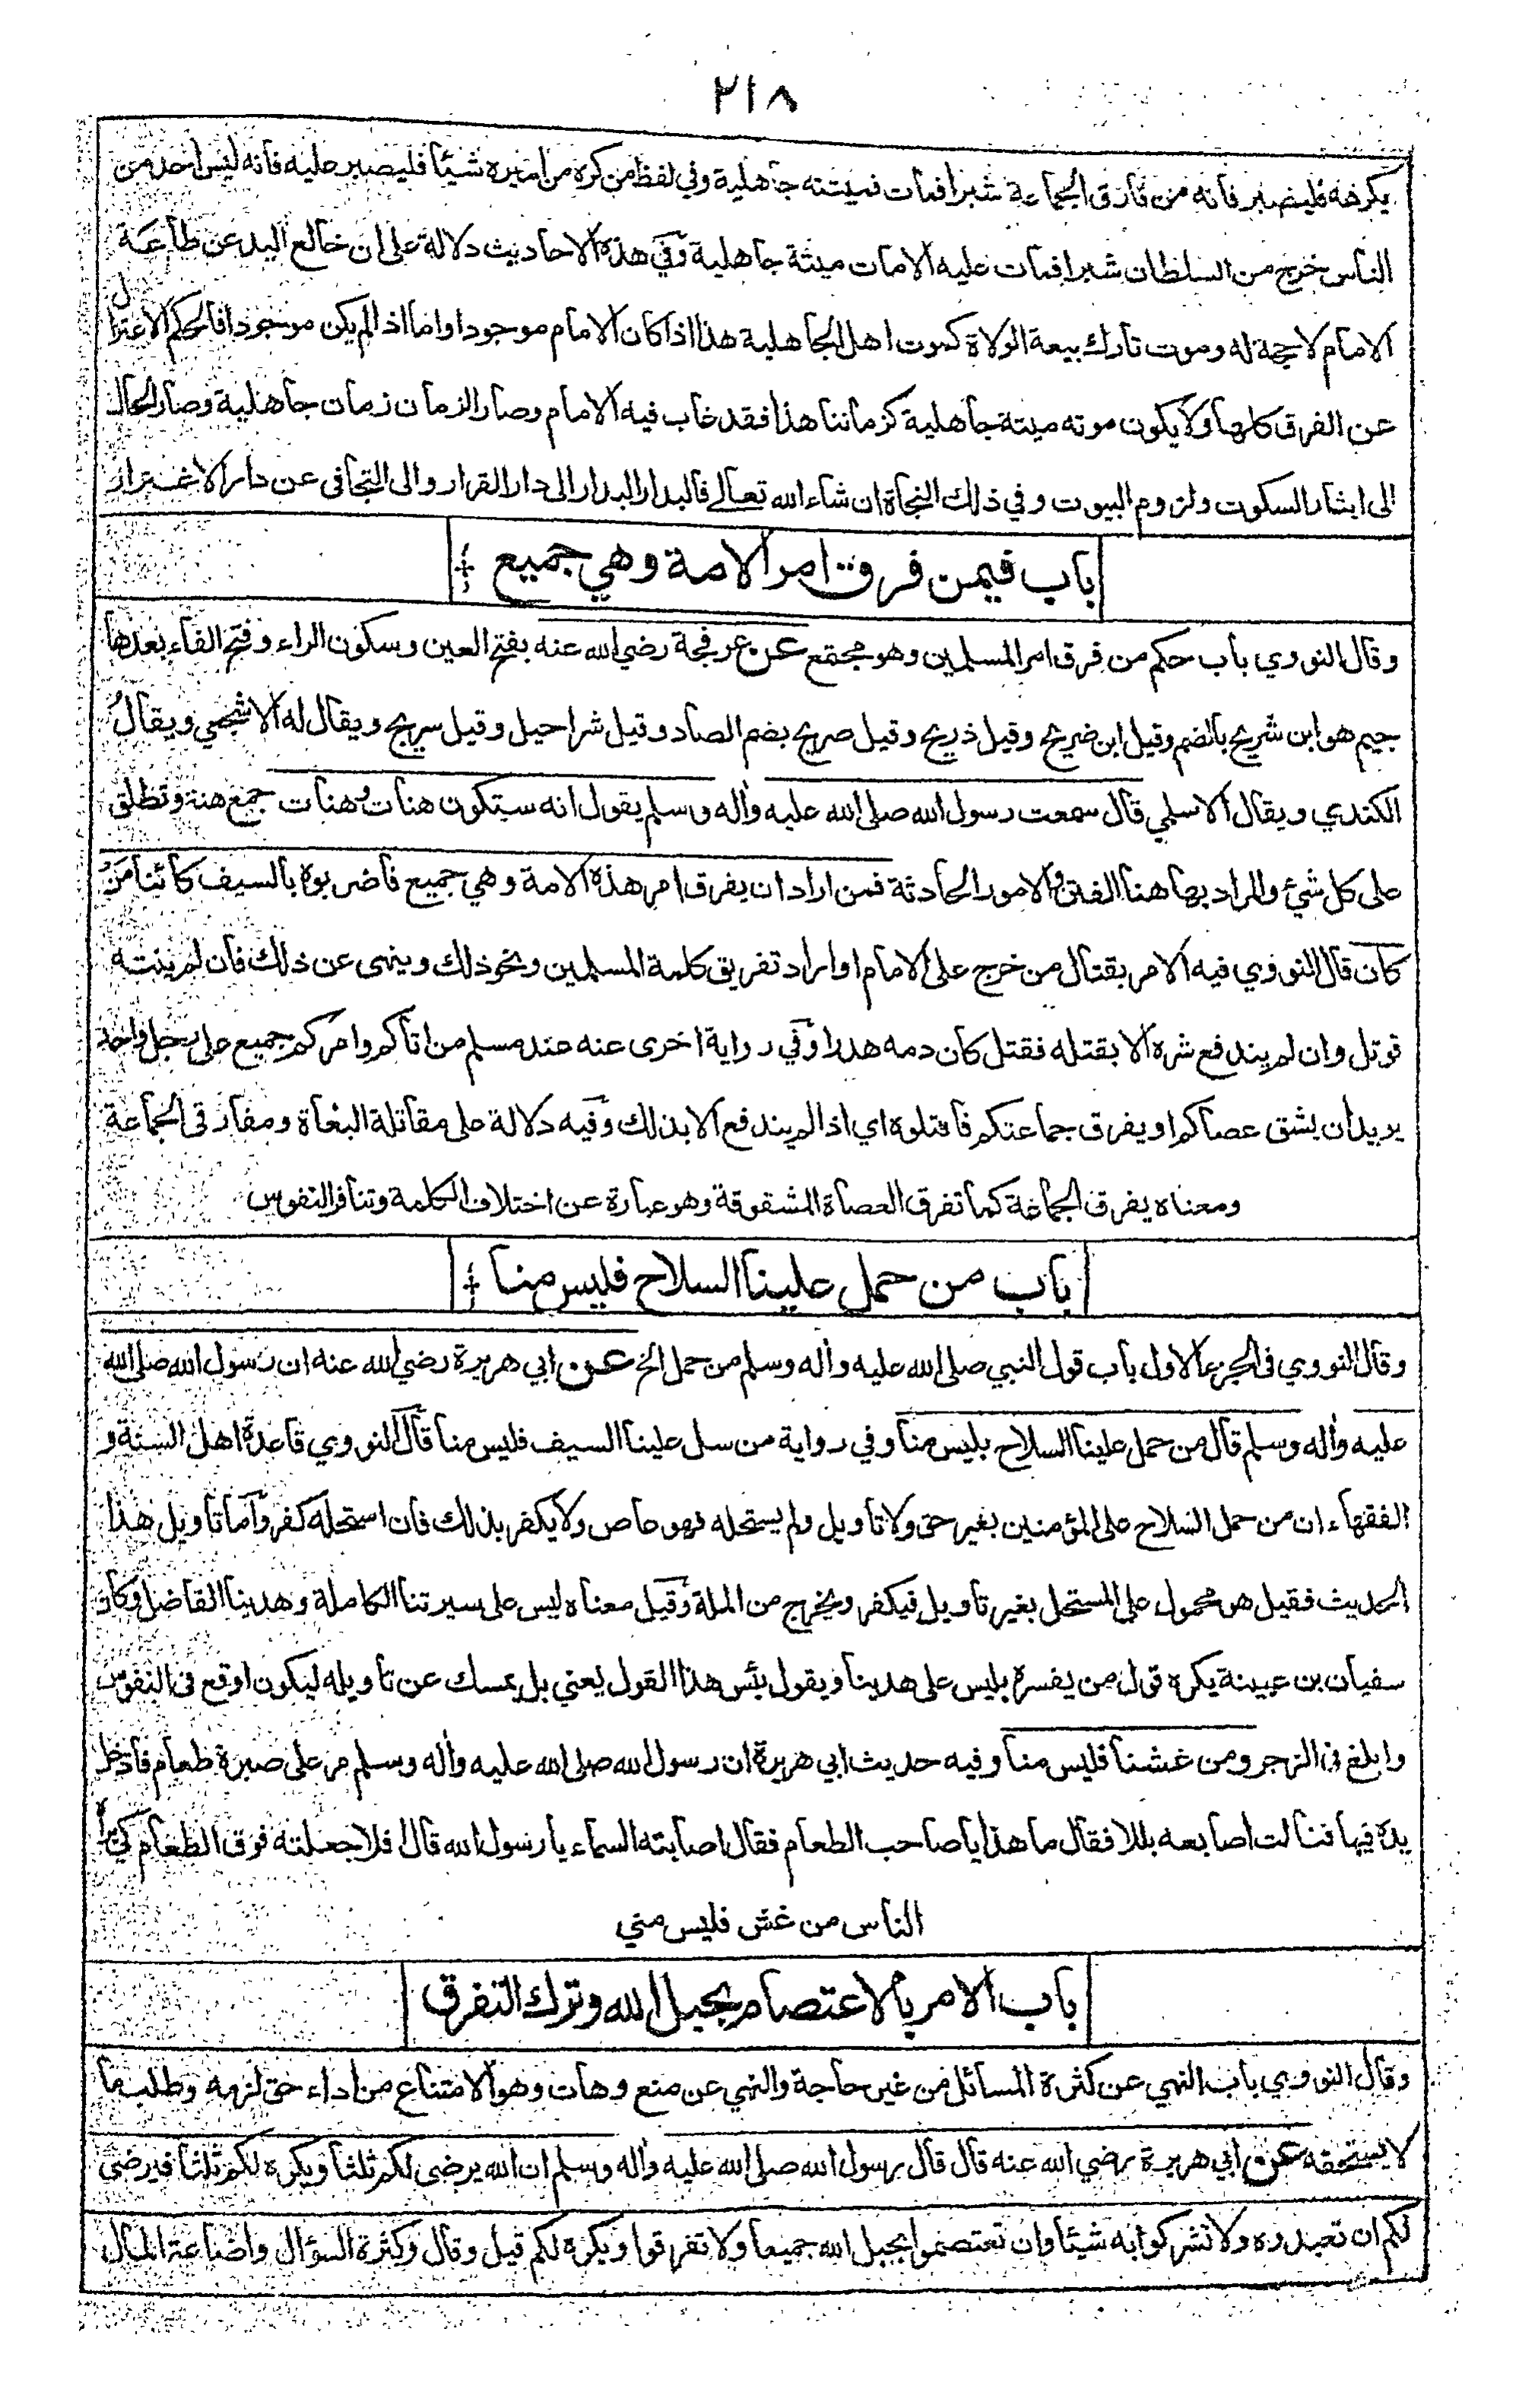 ٢١٨
يكرهه فليصبر فانه من فارق الجماعة شبرا فمات فميتته جاهلية وفي لفظ من كره من اميره شيئا فليصبر عليه فانه ليس احد من
الناس خرج من السلطان شبرا فمات عليه الا مات ميتة جاهلية وفي هذه الاحاديث دلالة على ان خالع اليد عن طاعة
الامام لا حجة له وموت تارك بيعة الولاة كموت اهل الجاهلية هذا اذا كان الامام موجودا واما اذا لم يكن موجودا فالحكم الاعتزال
عن الفرق كلها ولا يكون موته ميتة جاهلية كزماننا هذا فقد غاب فيه الامام وصار الزمان زمان جاهلية وصار الحال
الى ايثار السكوت ولزوم البيوت وفي ذلك النجاة ان شاء الله تعالى فالبدار البدار الى دار القرار والى التجافي عن دار الاغترار
باب فيمن فرق امر الامة وهي جميع
وقال النووي باب حكم من فرق امر المسلمين وهو مجتمع عن عرفجة رضي الله عنه بفتح العين وسكون الراء وفتح الفاء بعدها
جيم هو ابن شريح بالضم وقيل ابن ضريح وقيل ذريح وقيل صريح بضم الصاد وقيل شراحيل وقيل سريج ويقال له الاشجعي ويقال
الكندي ويقال الاسلمي قال سمعت رسول الله صلى الله عليه واله وسلم يقول انه ستكون هنات وهنات جمع هنة وتطلق
على كل شيء والمراد بها هنا الفتن والامور الحادثة فمن اراد ان يفرق امر هذه الامة وهي جميع فاضربوه بالسيف كائنا من
كان قال النووي فيه الامر بقتال من خرج على الامام او اراد تفريق كلمة المسلمين ونحو ذلك وينهى عن ذلك فان لم ينته
قوتل وان لم يندفع شره الا بقتله فقتل كان دمه هدرا وفي رواية اخرى عنه عند مسلم من اتاكم وامركم جميع على رجل واحد
يريد ان يشق عصاكم او يفرق جماعتكم فاقتلوه اي اذا لم يندفع الا بذلك وفيه دلالة على مقاتلة البغاة ومفارقي الجماعة
ومعناه يفرق الجماعة كما تفرق العصاة المشقوقة وهو عبارة عن اختلاف الكلمة وتنافر النفوس
باب من حمل علينا السلاح فليس منا
وقال النووي في الجزء الاول باب قول النبي صلى الله عليه واله وسلم من حمل الخ عن ابي هريرة رضي الله عنه ان رسول الله صلى الله
عليه واله وسلم قال من حمل علينا السلاح بليس منا وفي رواية من سل علينا السيف فليس منا قال النووي قاعدة اهل السنة و
الفقهاء ان من حمل السلاح على المؤمنين بغير حق ولا تاويل ولم يستحله فهو عاص ولا يكفر بذلك فان استحله كفر واما تاويل هذا
الحديث فقيل هو محمول على المستحل بغير تاويل فيكفر ويخرج من الملة وقيل معناه ليس على سيرتنا الكاملة وهدينا الفاضل وكان
سفيان بن عيينة يكره قول من يفسره بليس على هدينا ويقول بئس هذا القول يعني بل يمسك عن تاويله ليكون اوقع في النفوس
وابلغ في الزجر ومن غشنا فليس منا وفيه حديث ابي هريرة ان رسول الله صلى الله عليه واله وسلم مر على صبرة طعام فادخل
يده فيها فنالت اصابعه بللا فقال ما هذا يا صاحب الطعام فقال اصابته السماء يا رسول الله قال افلا جعلته فوق الطعام كي يراه
الناس من غش فليس مني
باب الامر بالاعتصام بحبل الله وترك التفرق
وقال النووي باب النهي عن كثرة المسائل من غير حاجة والنهي عن منع وهات وهو الامتناع من اداء حق لزمه وطلب ما
لا يستحقه عن ابي هريرة رضي الله عنه قال قال رسول الله صلى الله عليه واله وسلم ان الله يرضى لكم ثلثا ويكره لكم ثلثا فيرضى
لكم ان تعبدوه ولا تشركوا به شيئا وان تعتصموا بحبل الله جميعا ولا تفرقوا ويكره لكم قيل وقال وكثرة السؤال واضاعة المال